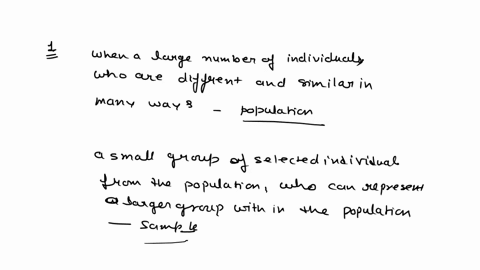 1
when a large number of individuals
who are different and similar in
many ways - population
a small group of selected individual
from the population, who can represent
a larger group with in the population
- Sample